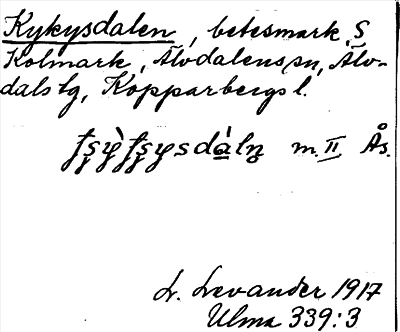 Kykysdalen, betesmark, S
Kolmark, Älvdalens sn, Älv-
dals tg, Kopparbergs l.
m. II Ås.
L. Levander 1917
Ulma 339:3